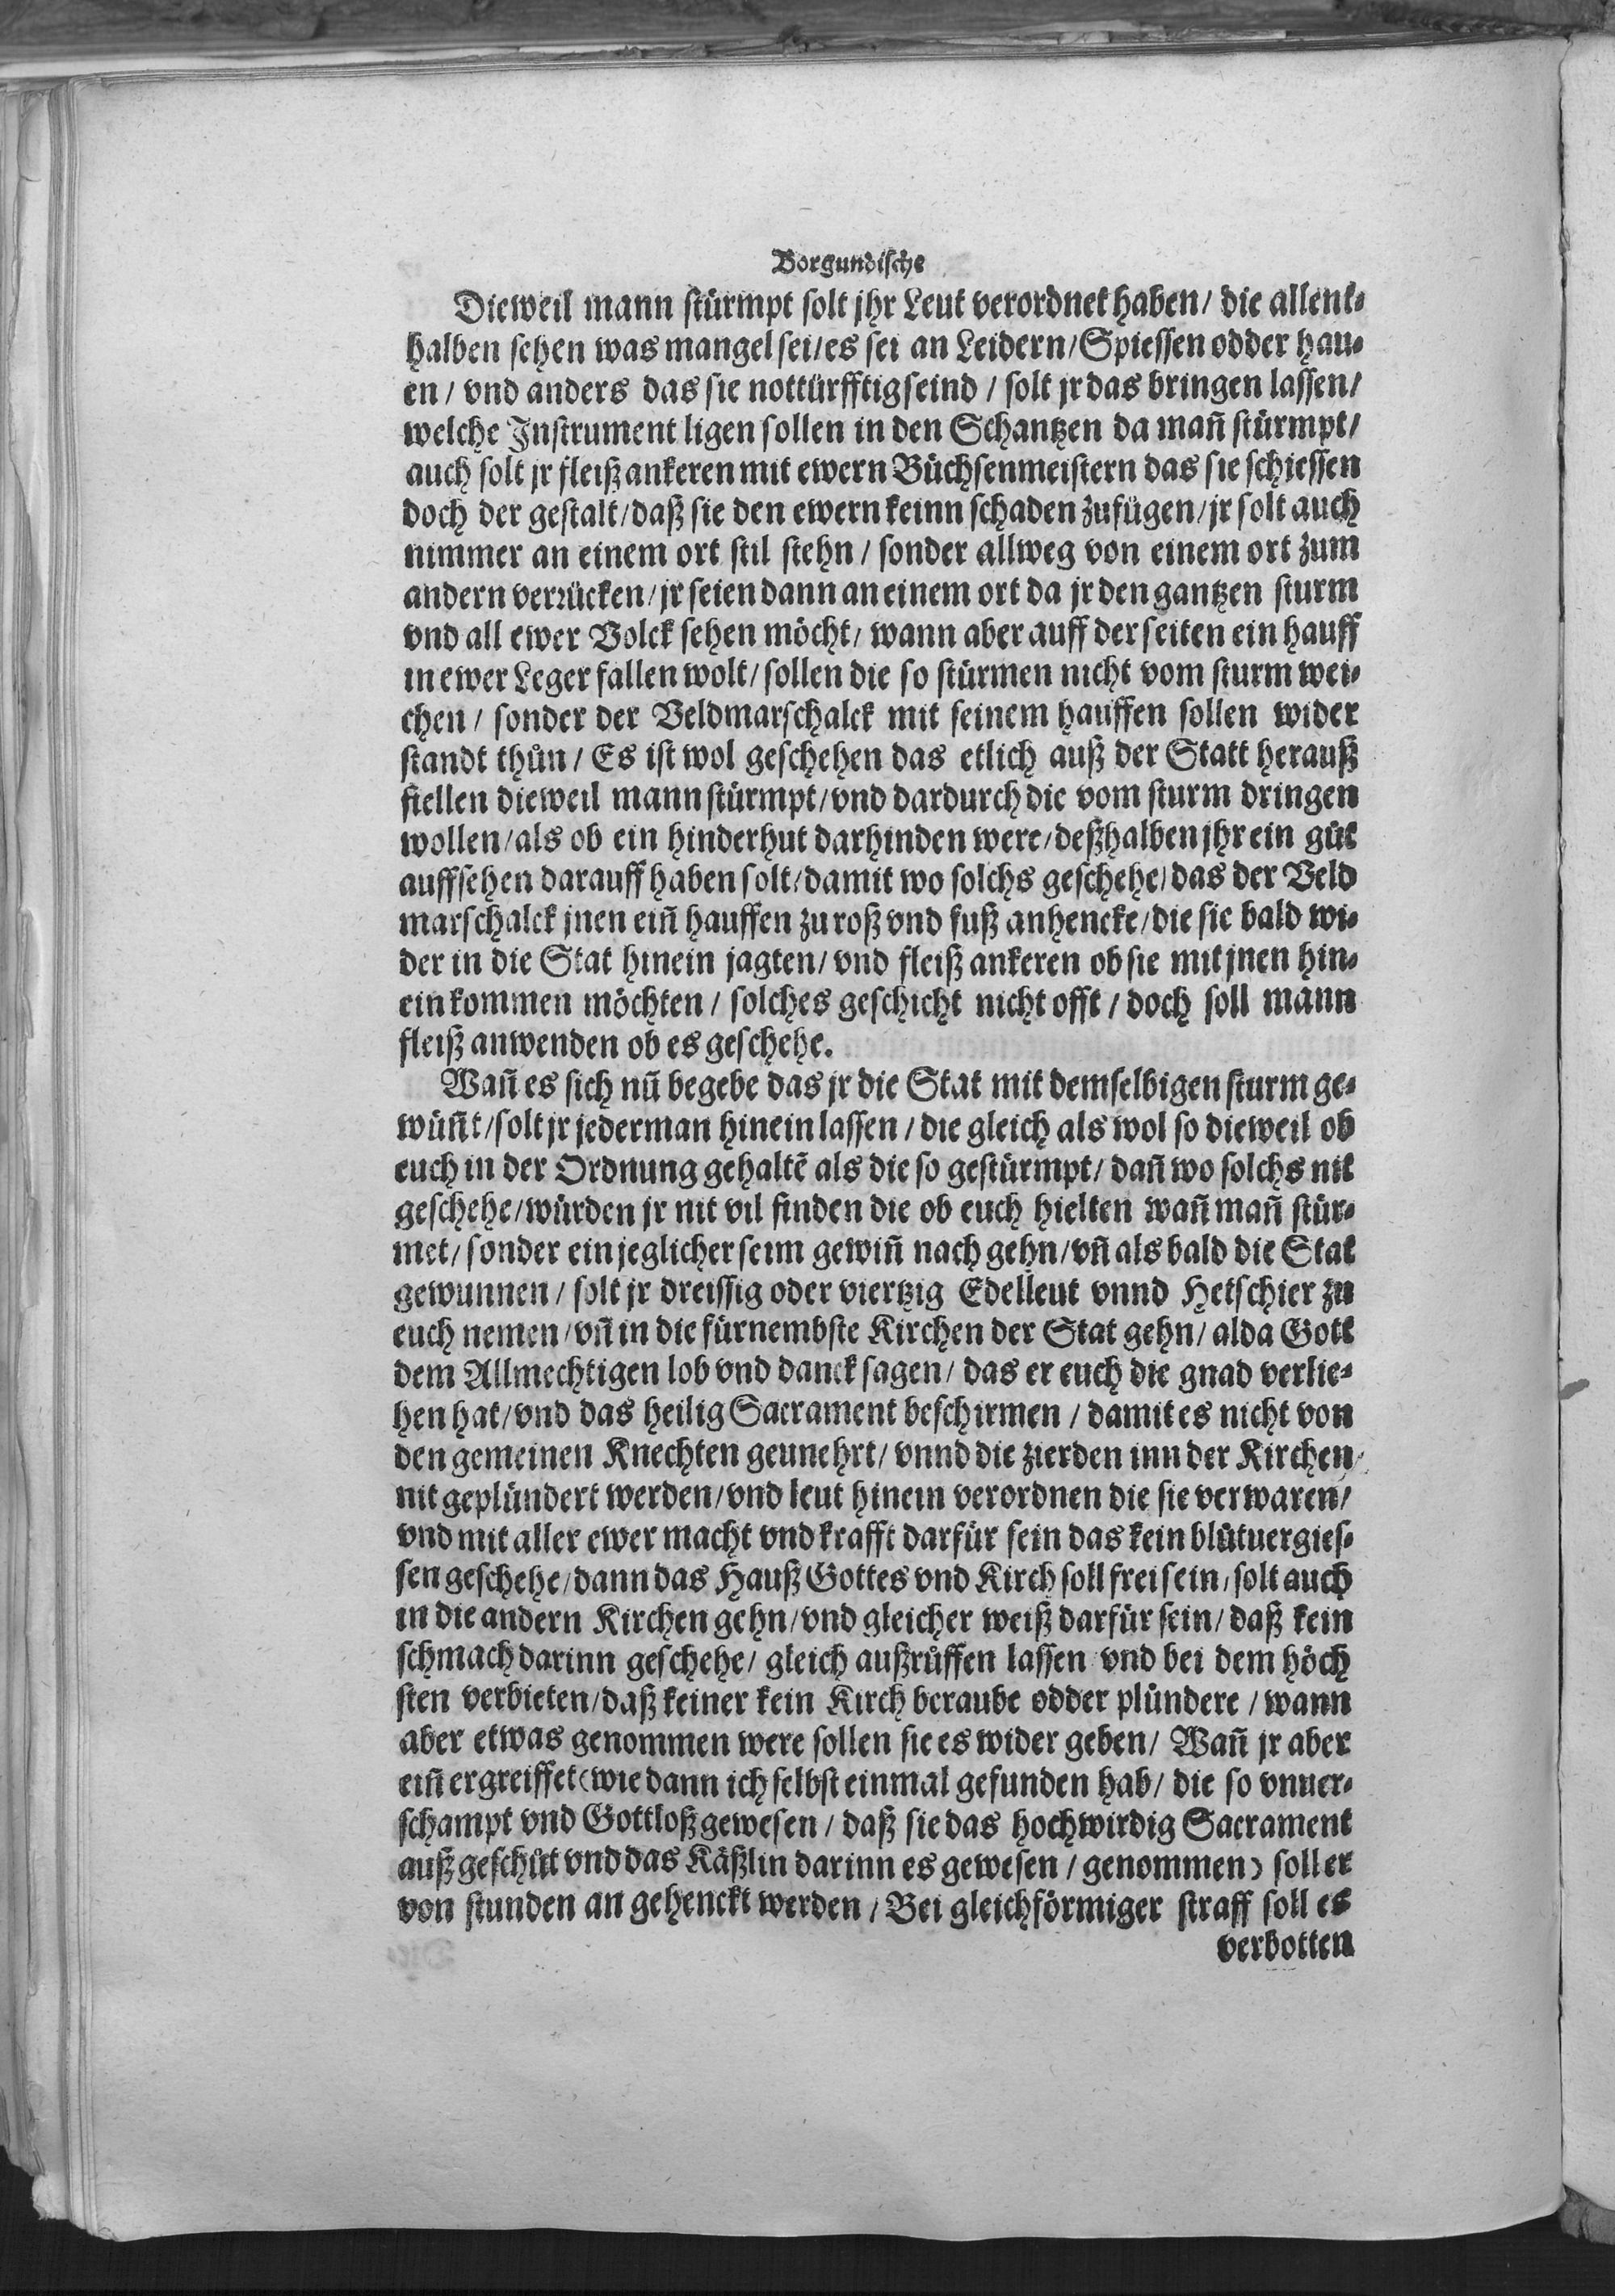 Borgundische
Dieweil mann stürmpt solt jhr Leut verordnet haben / die allent-
halben sehen was mangel sei / es sei an Leidern / Spiessen odder hau-
en / vnd anders das sie nottürfftig seind / solt jr das bringen lassen /
welche Instrument ligen sollen in den Schantzen da mañ stürmpt /
auch solt jr fleiß ankeren mit ewern Büchsenmeistern das sie schiessen
doch der gestalt / daß sie den ewern keinn schaden zufügen / jr solt auch
nimmer an einem ort stil stehn / sonder allweg von einem ort zum
andern verrücken / jr seien dann an einem ort da jr den gantzen sturm
vnd all ewer Volck sehen möcht / wann aber auff der seiten ein hauff
in ewer Leger fallen wolt / sollen die so stürmen nicht vom sturm wei-
chen / sonder der Veldmarschalck mit seinem hauffen sollen wider
standt thůn / Es ist wol geschehen das etlich auß der Statt herauß
fiellen dieweil mann stürmpt / vnd dardurch die vom sturm dringen
wollen / als ob ein hinderhut darhinden were / deßhalben jhr ein gůt
auffsehen darauff haben solt / damit wo solchs geschehe / das der Veld
marschalck jnen eiñ hauffen zu roß vnd fuß anhencke / die sie bald wi-
der in die Stat hinein jagten / vnd fleiß ankeren ob sie mit jnen hin-
ein kommen möchten / solches geschicht nicht offt / doch soll mann
fleiß anwenden ob es geschehe.
Wañ es sich nũ begebe das jr die Stat mit demselbigen sturm ge-
wüñt / solt jr jederman hinein lassen / die gleich als wol so dieweil ob
euch in der Ordnung gehaltẽ als die so gestürmpt / dañ wo solchs nit
geschehe / würden jr nit vil finden die ob euch hielten wañ mañ stür-
met / sonder ein jeglicher seim gewiñ nach gehn / vñ als bald die Stat
gewunnen / solt jr dreissig oder viertzig Edelleut vnnd Hetschier zu
euch nemen / vñ in die fürnembste Kirchen der Stat gehn / alda Gott
dem Allmechtigen lob vnd danck sagen / das er euch die gnad verlie-
hen hat / vnd das heilig Sacrament beschirmen / damit es nicht von
den gemeinen Knechten geunehrt / vnnd die zierden inn der Kirchen /
nit geplündert werden / vnd leut hinein verordnen die sie verwaren /
vnd mit aller ewer macht vnd krafft darfür sein das kein blůtuergies-
sen geschehe / dann das Hauß Gottes vnd Kirch soll frei sein / solt auch
in die andern Kirchen gehn / vnd gleicher weiß darfür sein / daß kein
schmach darinn geschehe / gleich außrůffen lassen vnd bei dem höch
sten verbieten / daß keiner kein Kirch beraube odder plündere / wann
aber etwas genommen were sollen sie es wider geben / Wañ jr aber
eiñ ergreiffet (wie dann ich selbst einmal gefunden hab / die so vnuer-
schampt vnd Gottloß gewesen / daß sie das hochwirdig Sacrament
auß geschüt vnd das Käßlin darinn es gewesen / genommen) soll er
von stunden an gehenckt werden / Bei gleichförmiger straff soll es
verbotten